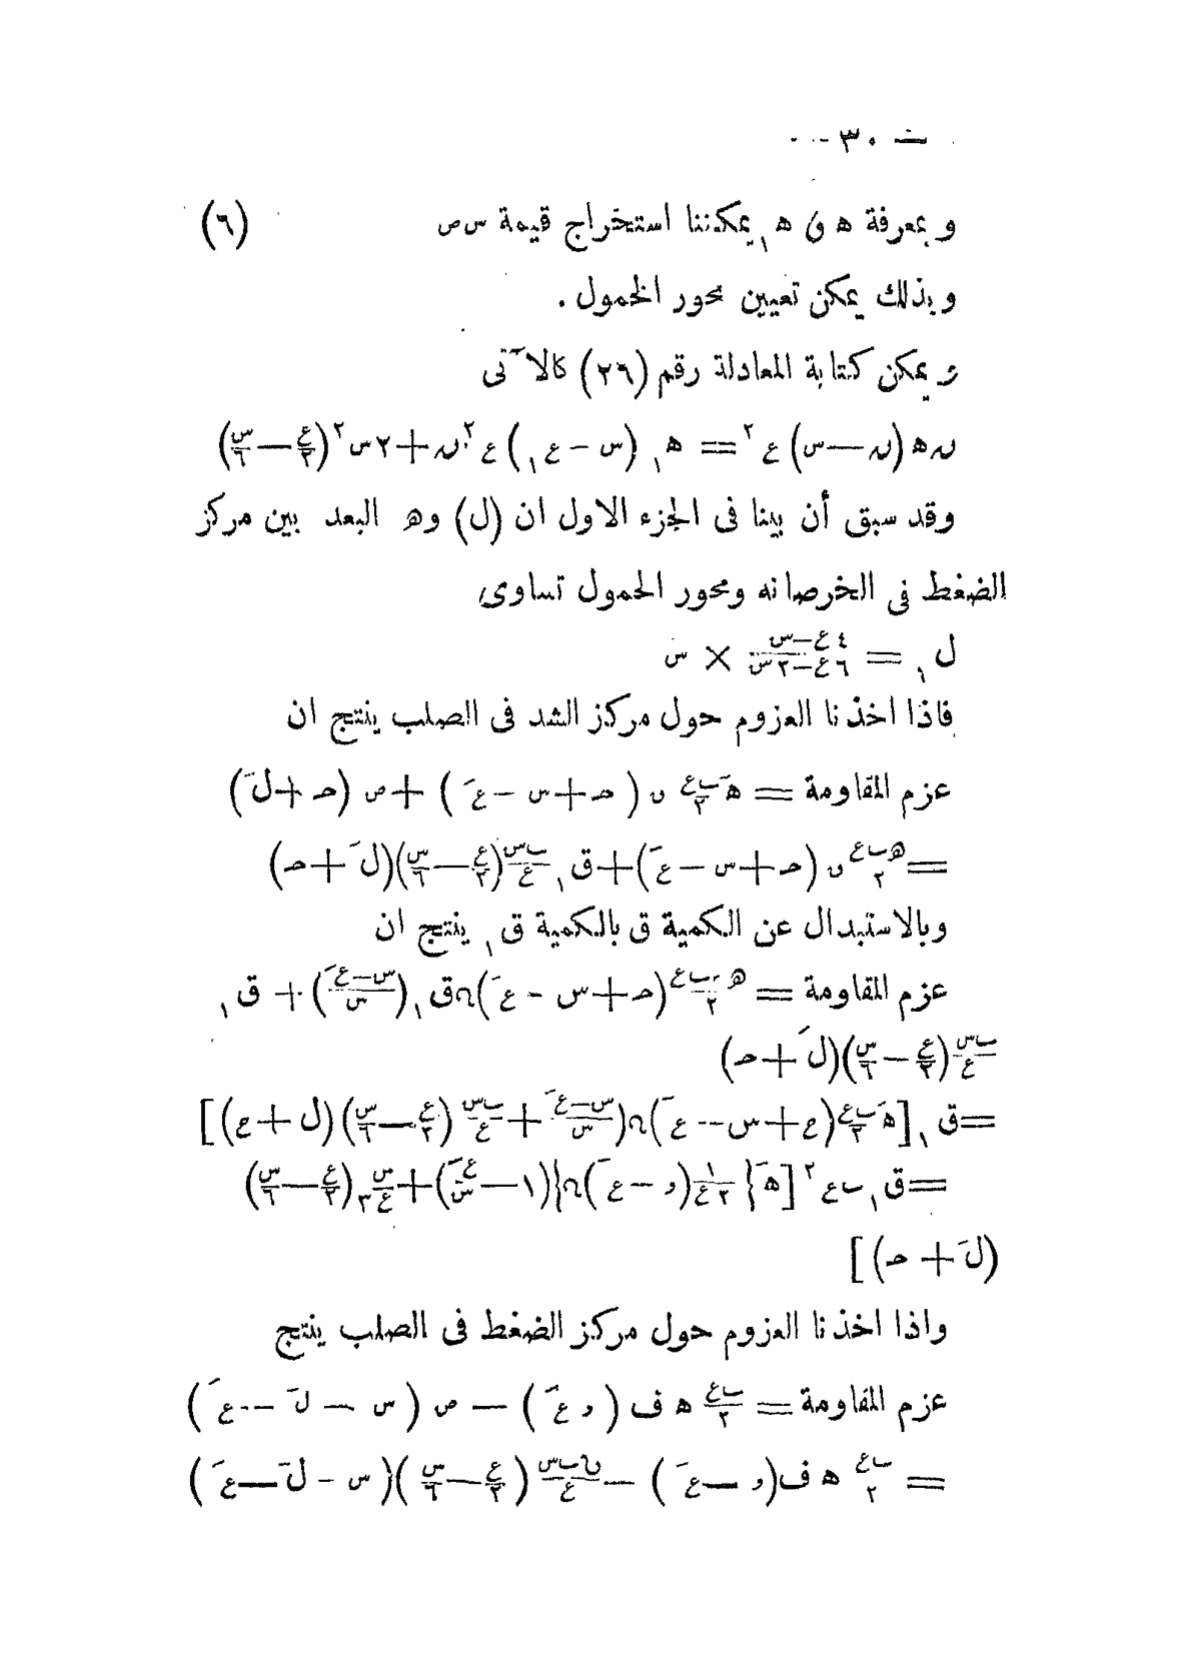 — ٣٠ —
و بمعرفة ه و ه١ يمكننا استخراج قيمة س ص (٦)
وبذلك يمكن تعيين محور الخمول .
و يمكن كتابة المعادلة رقم (٢٦) كالآتى
ن ه (ن — س) ع٢ = ه١ (س - ع١) ع٢ ن + ٢ س٢ (ع/٢ — س/٦)
وقد سبق أن بينا فى الجزء الاول ان (ل) وهو البعد بين مركز
الضغط فى الخرصانه ومحور الخمول تساوى
ل١ = (٤ع—س)/(٦ع—٢س) × س
فاذا اخذنا العزوم حول مركز الشد فى الصلب ينتج ان
عزم المقاومة = هَ ب ع/٢ ن (حـ + س - عَ) + ص (حـ + لَ)
= ه ب ع/٢ ن (حـ + س - عَ) + ق١ ب س/ع (ع/٢ — س/٦)(لَ + حـ)
وبالاستبدال عن الكمية ق بالكمية ق١ ينتج ان
عزم المقاومة = ه ب ع/٢ (حـ + س - عَ) ن ق١ ((س—عَ)/س) + ق١
ب س/ع (ع/٢ — س/٦)(لَ + حـ)
= ق١ [هَ ب ع/٢ (ع + س -- عَ) ن ((س—عَ)/س + ب س/ع (ع/٢ — س/٦)(ل + ع)]
= ق١ ب ع٢ [هَ { ١/٢ع (د - عَ) ن}(١ — عَ/س) + س/ع٣ (ع/٢ — س/٦)
(لَ + حـ)]
واذا اخذنا العزوم حول مركز الضغط فى الصلب ينتج
عزم المقاومة = ب ع/٢ ه ف (د عَ) — ص (س — لَ -- عَ)
= ب ع/٢ ه ف (د — عَ) — ن ب س/ع (ع/٢ — س/٦)(س - لَ — عَ)